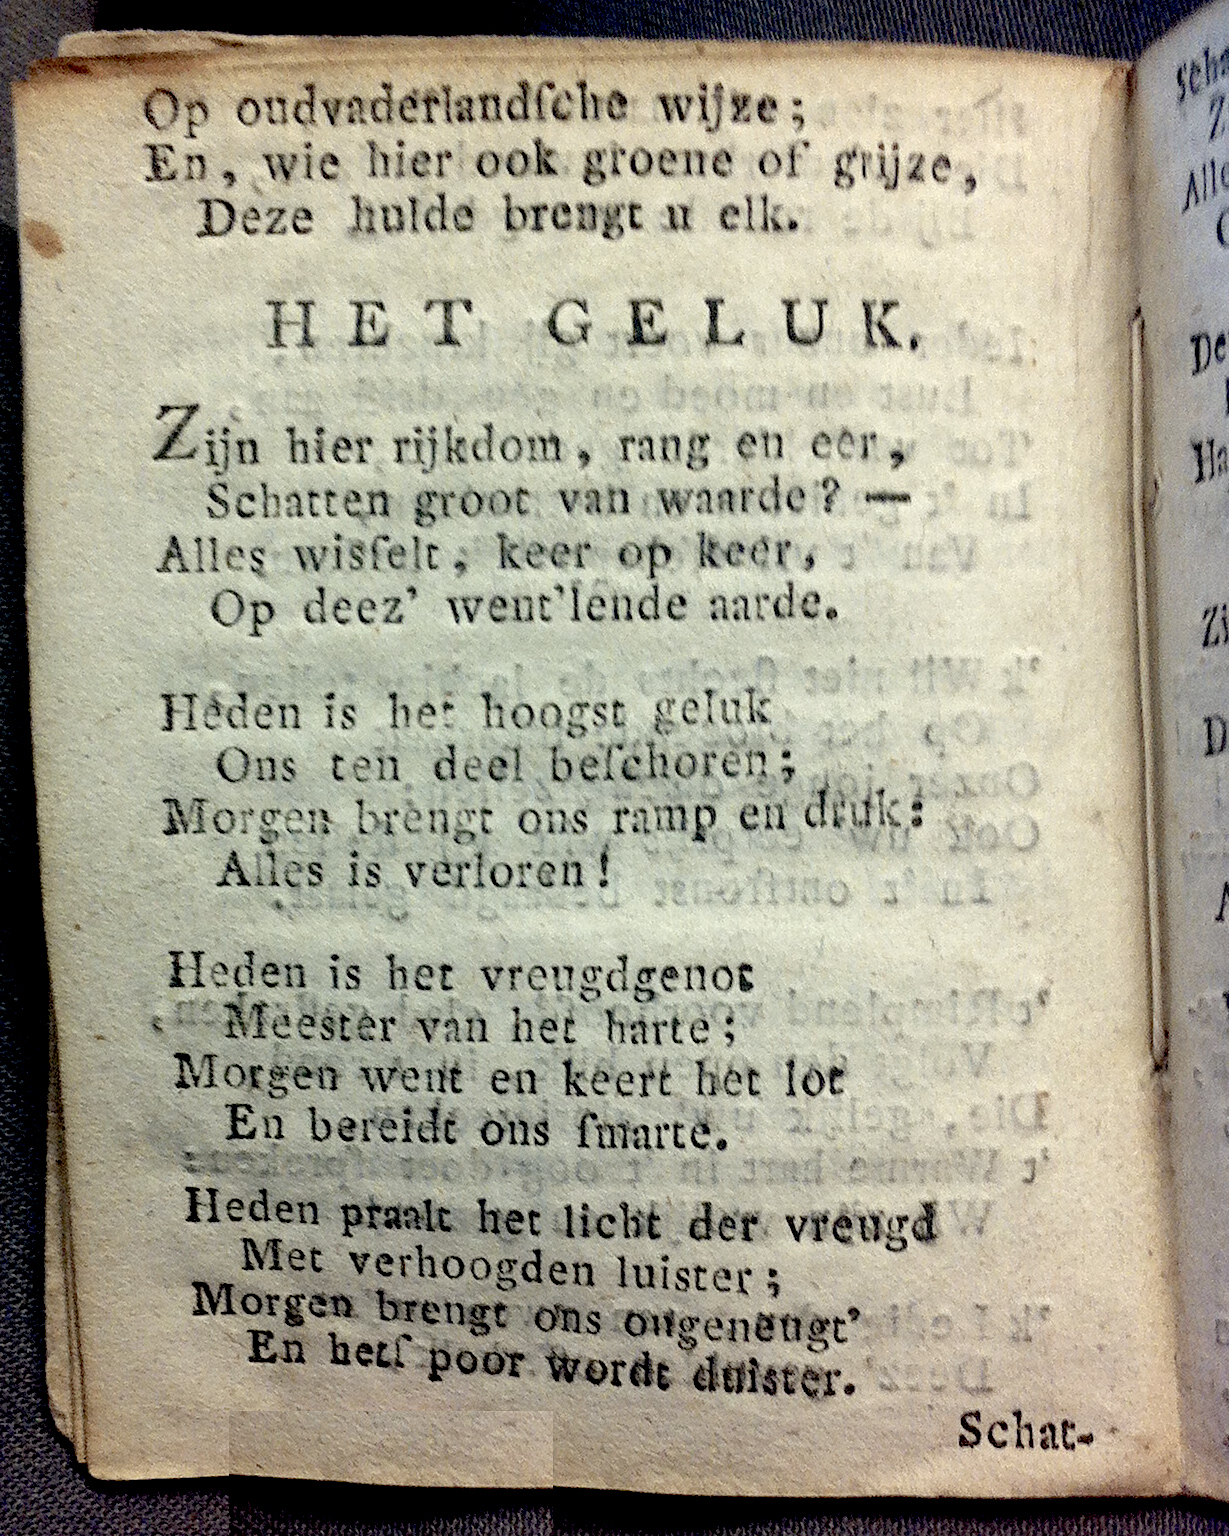 Op oudvaderlandſche wijze;
En, wie hier ook groene of grijze,
Deze hulde brengt u elk.
HET GELUK.
Zijn hier rijkdom, rang en eer,
Schatten groot van waarde? —
Alles wisſelt, keer op keer,
Op deez' went'lende aarde.
Heden is het hoogst geluk
Ons ten deel beſchoren;
Morgen brengt ons ramp en druk:
Alles is verloren!
Heden is het vreugdgenot
Meester van het harte;
Morgen went en keert het lot
En bereidt ons ſmarte.
Heden praalt het licht der vreugd
Met verhoogden luister;
Morgen brengt ons ongeneugt'
En hetſ poor wordt duister.
Schat-